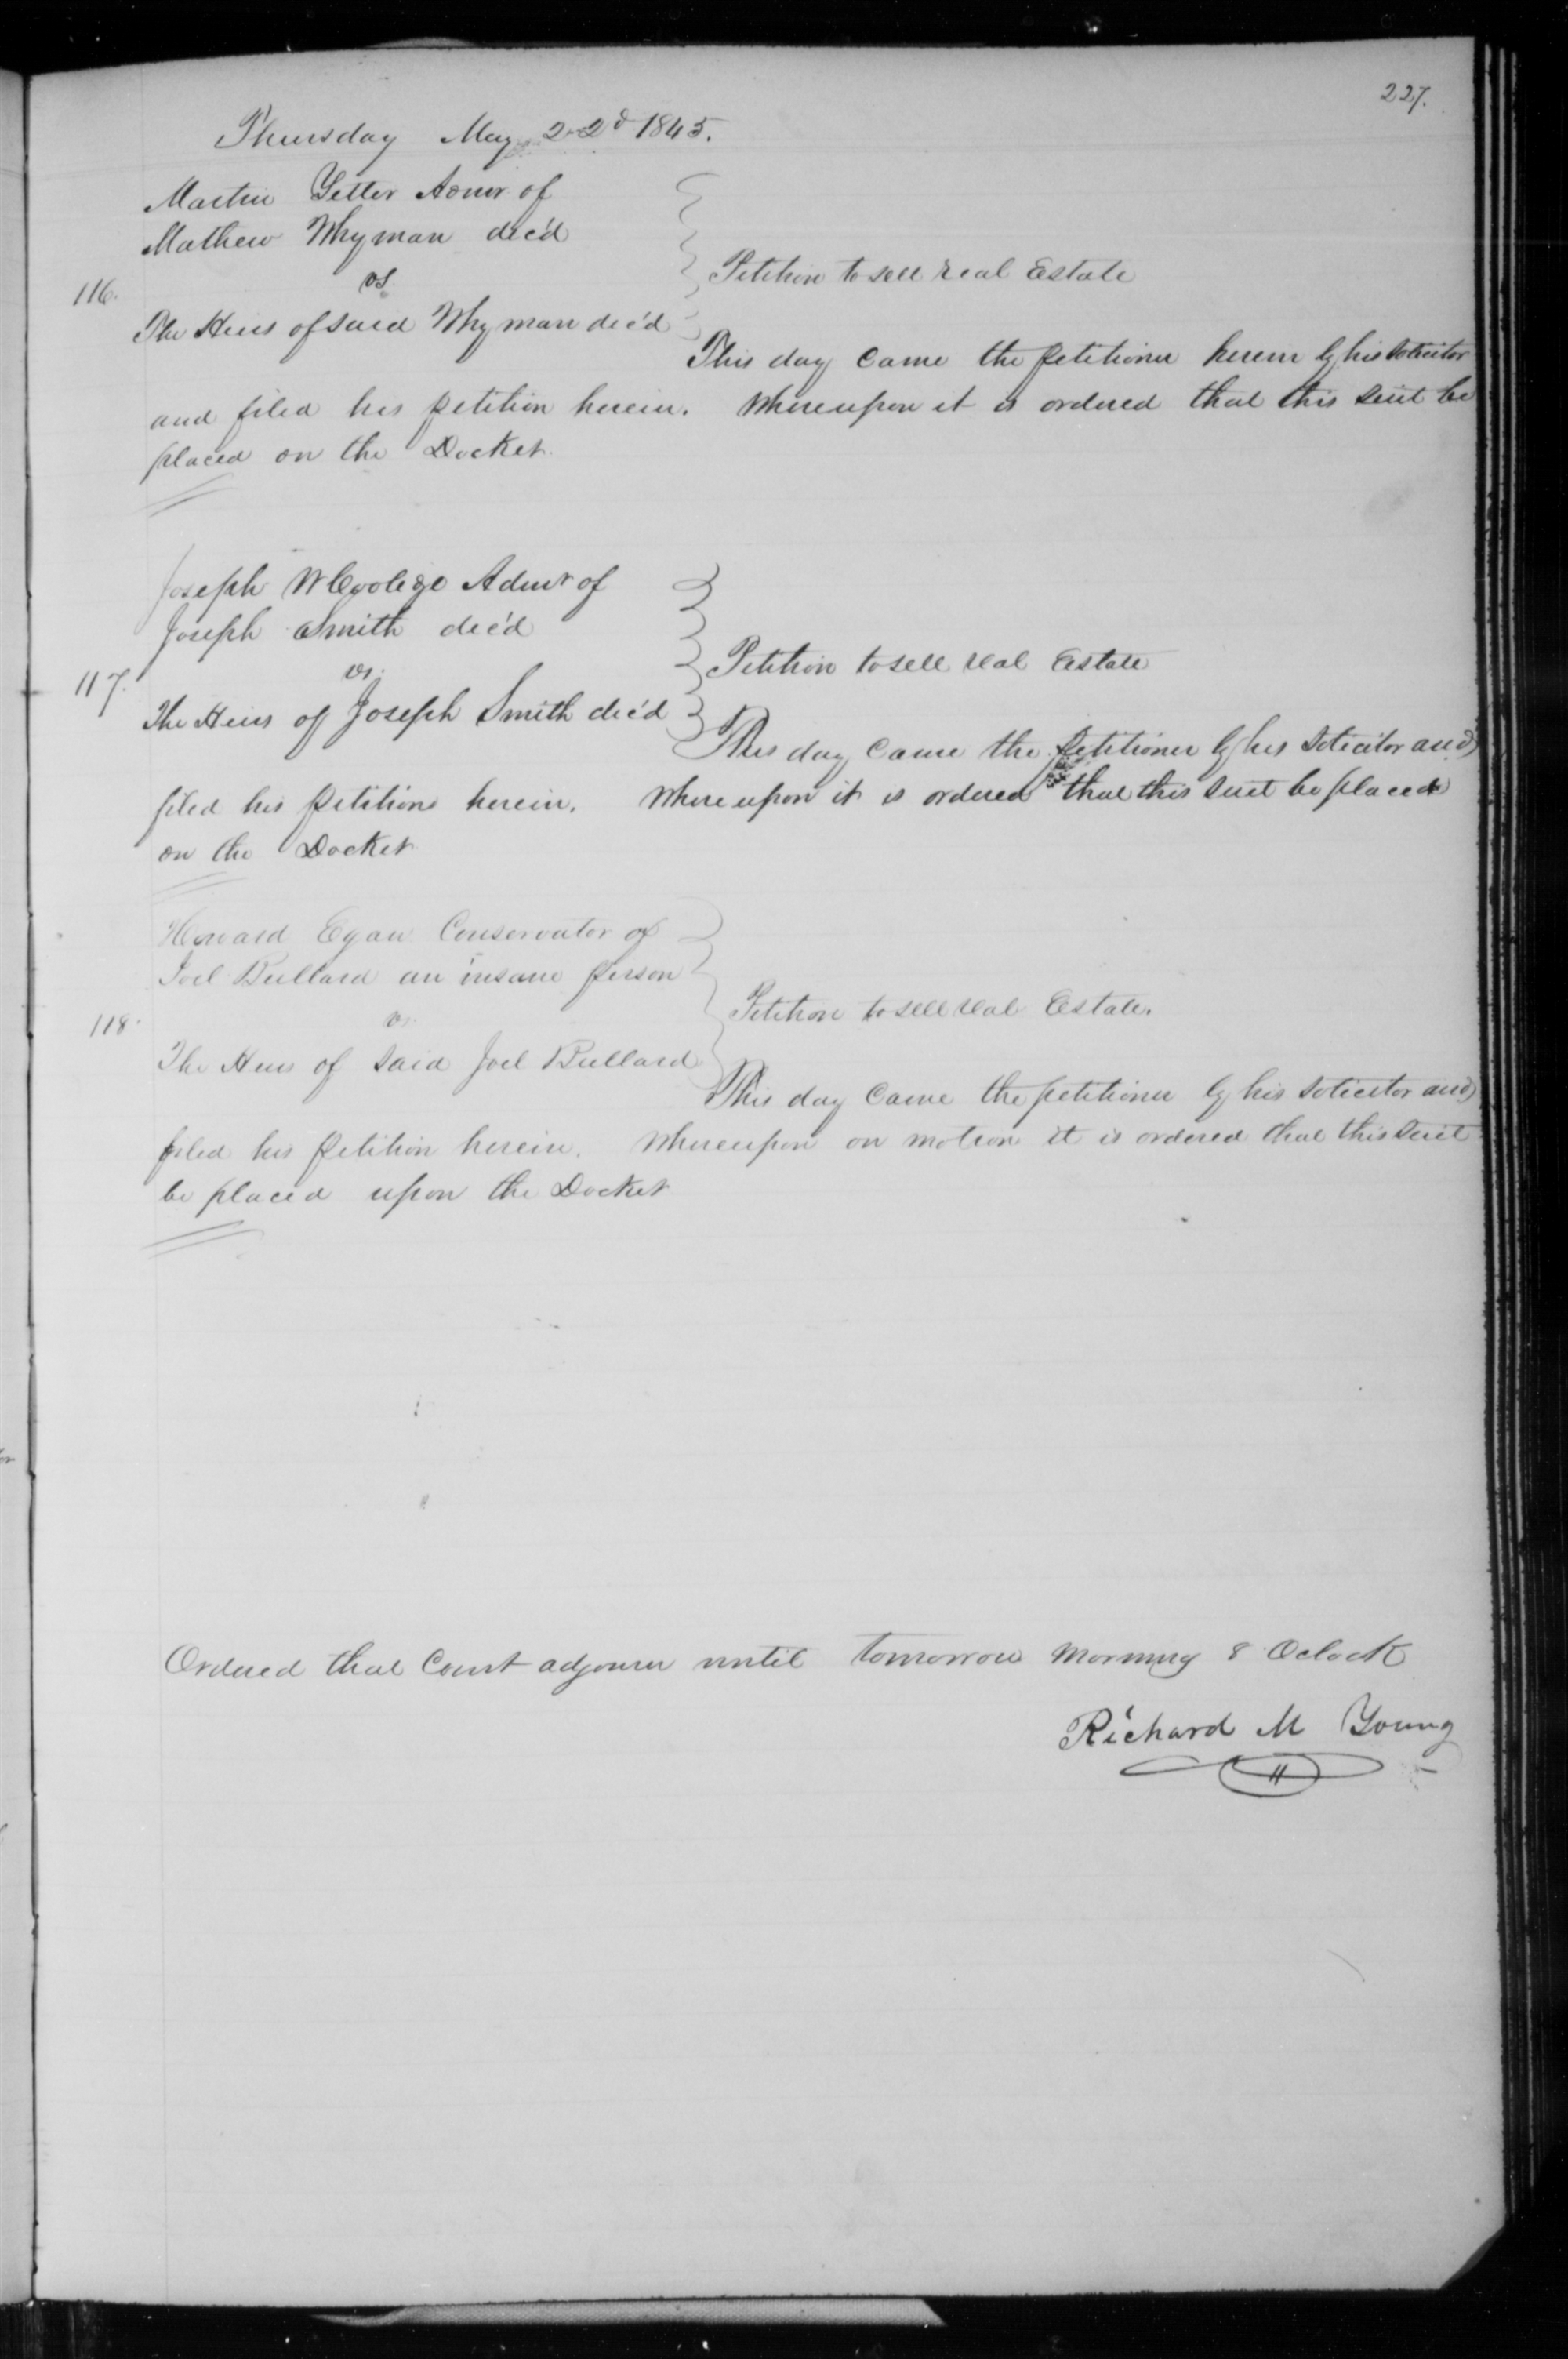 227.
Thursday May 22d 1845.
Martin Yetter Admr of
Mathew Whyman dec'd
vs
116.
Petition to sell real Estate
The Heirs of said Whyman dec'd
This day came the petitioner herein by his solicitor
and filed his petition herein. Whereupon it is ordered that this suit be
placed on the Docket.
Joseph W Coolige Admr of
Joseph Smith dec'd
vs.
117.
Petition to sell real Estate
The Heirs of Joseph Smith dec'd
This day came the petitioner by his solicitor and
filed his petition herein. Whereupon it is ordered that this suit be placed
on the Docket
Howard Egan Conservator of
Joel Bullard an insane person
vs.
118.
Petition to sell real Estate.
The Heirs of said Joel Bullard
This day came the petitioner by his solicitor and
filed his petition herein. Whereupon on motion it is ordered that this suit
be placed upon the Docket
Ordered that Court adjourn until tomorrow morning 8 Oclock
Richard M Young